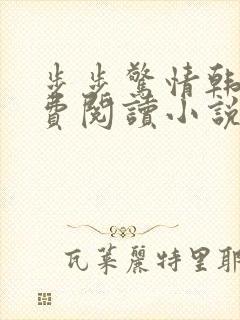 步步驚情韓
費閱讀小說
瓦萊麗特里耶